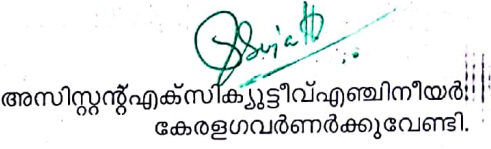 അസിസ്റ്റന്റ്എക്സിക്യുട്ടീവ്എഞ്ചിനീയർ
കേരളഗവർണർക്കുവേണ്ടി.